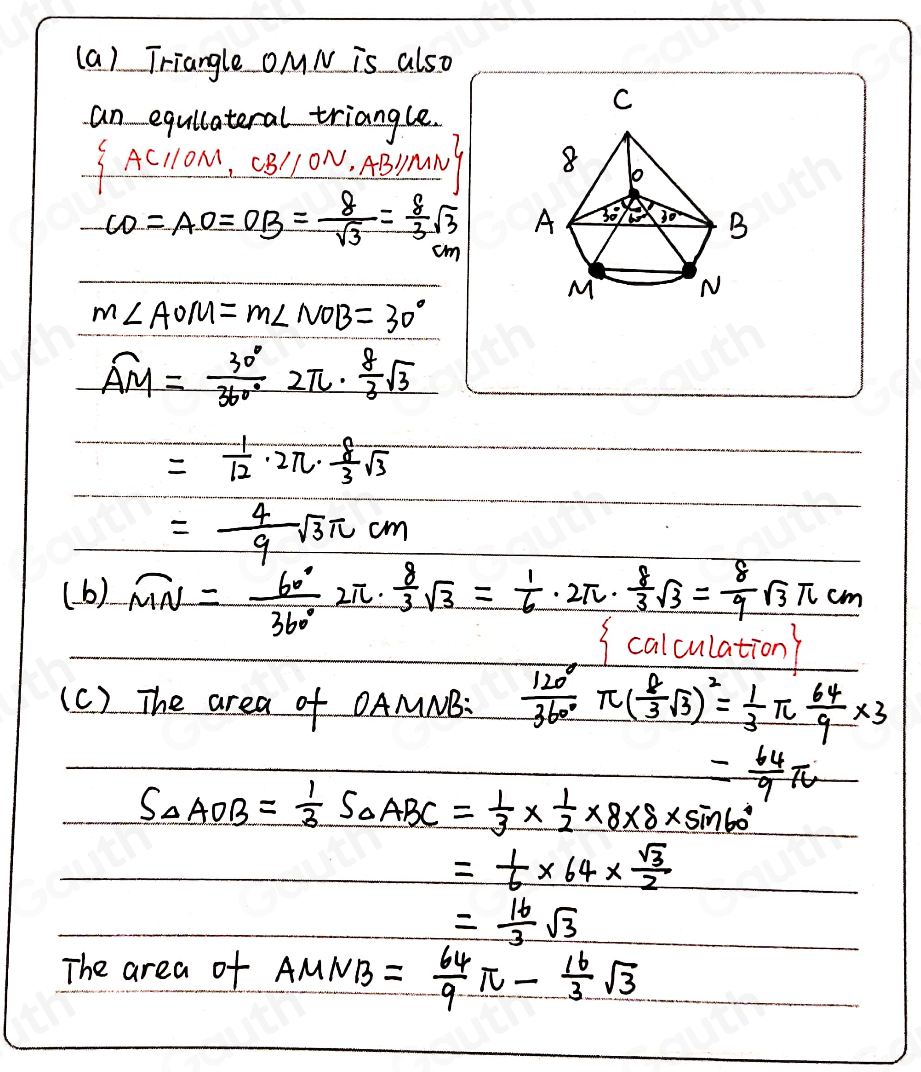 (a) Triangle OMN is also
an equllateral triangle.
{ AC//OM, CB//ON. AB//MN}
CO = AO = OB = 8/√3 = 8/3 √3 cm
m∠AOM = m∠NOB = 30°
C
8
O
30° 60° 30
A
B
M
N
⌒AM = 30°/360° 2π · 8/3 √3
= 1/12 · 2π · 8/3 √3
= 4/9 √3 π cm
(b) ⌒MN = 60°/360° 2π · 8/3 √3 = 1/6 · 2π · 8/3 √3 = 8/9 √3 π cm
{ calculation}
(C) The area of OAMNB: 120°/360° π(8/3 √3)² = 1/3 π 64/9 × 3
= 64/9 π
S△AOB = 1/3 S△ABC = 1/3 × 1/2 × 8 × 8 × sin60°
= 1/6 × 64 × √3/2
= 16/3 √3
The area of AMNB = 64/9 π - 16/3 √3